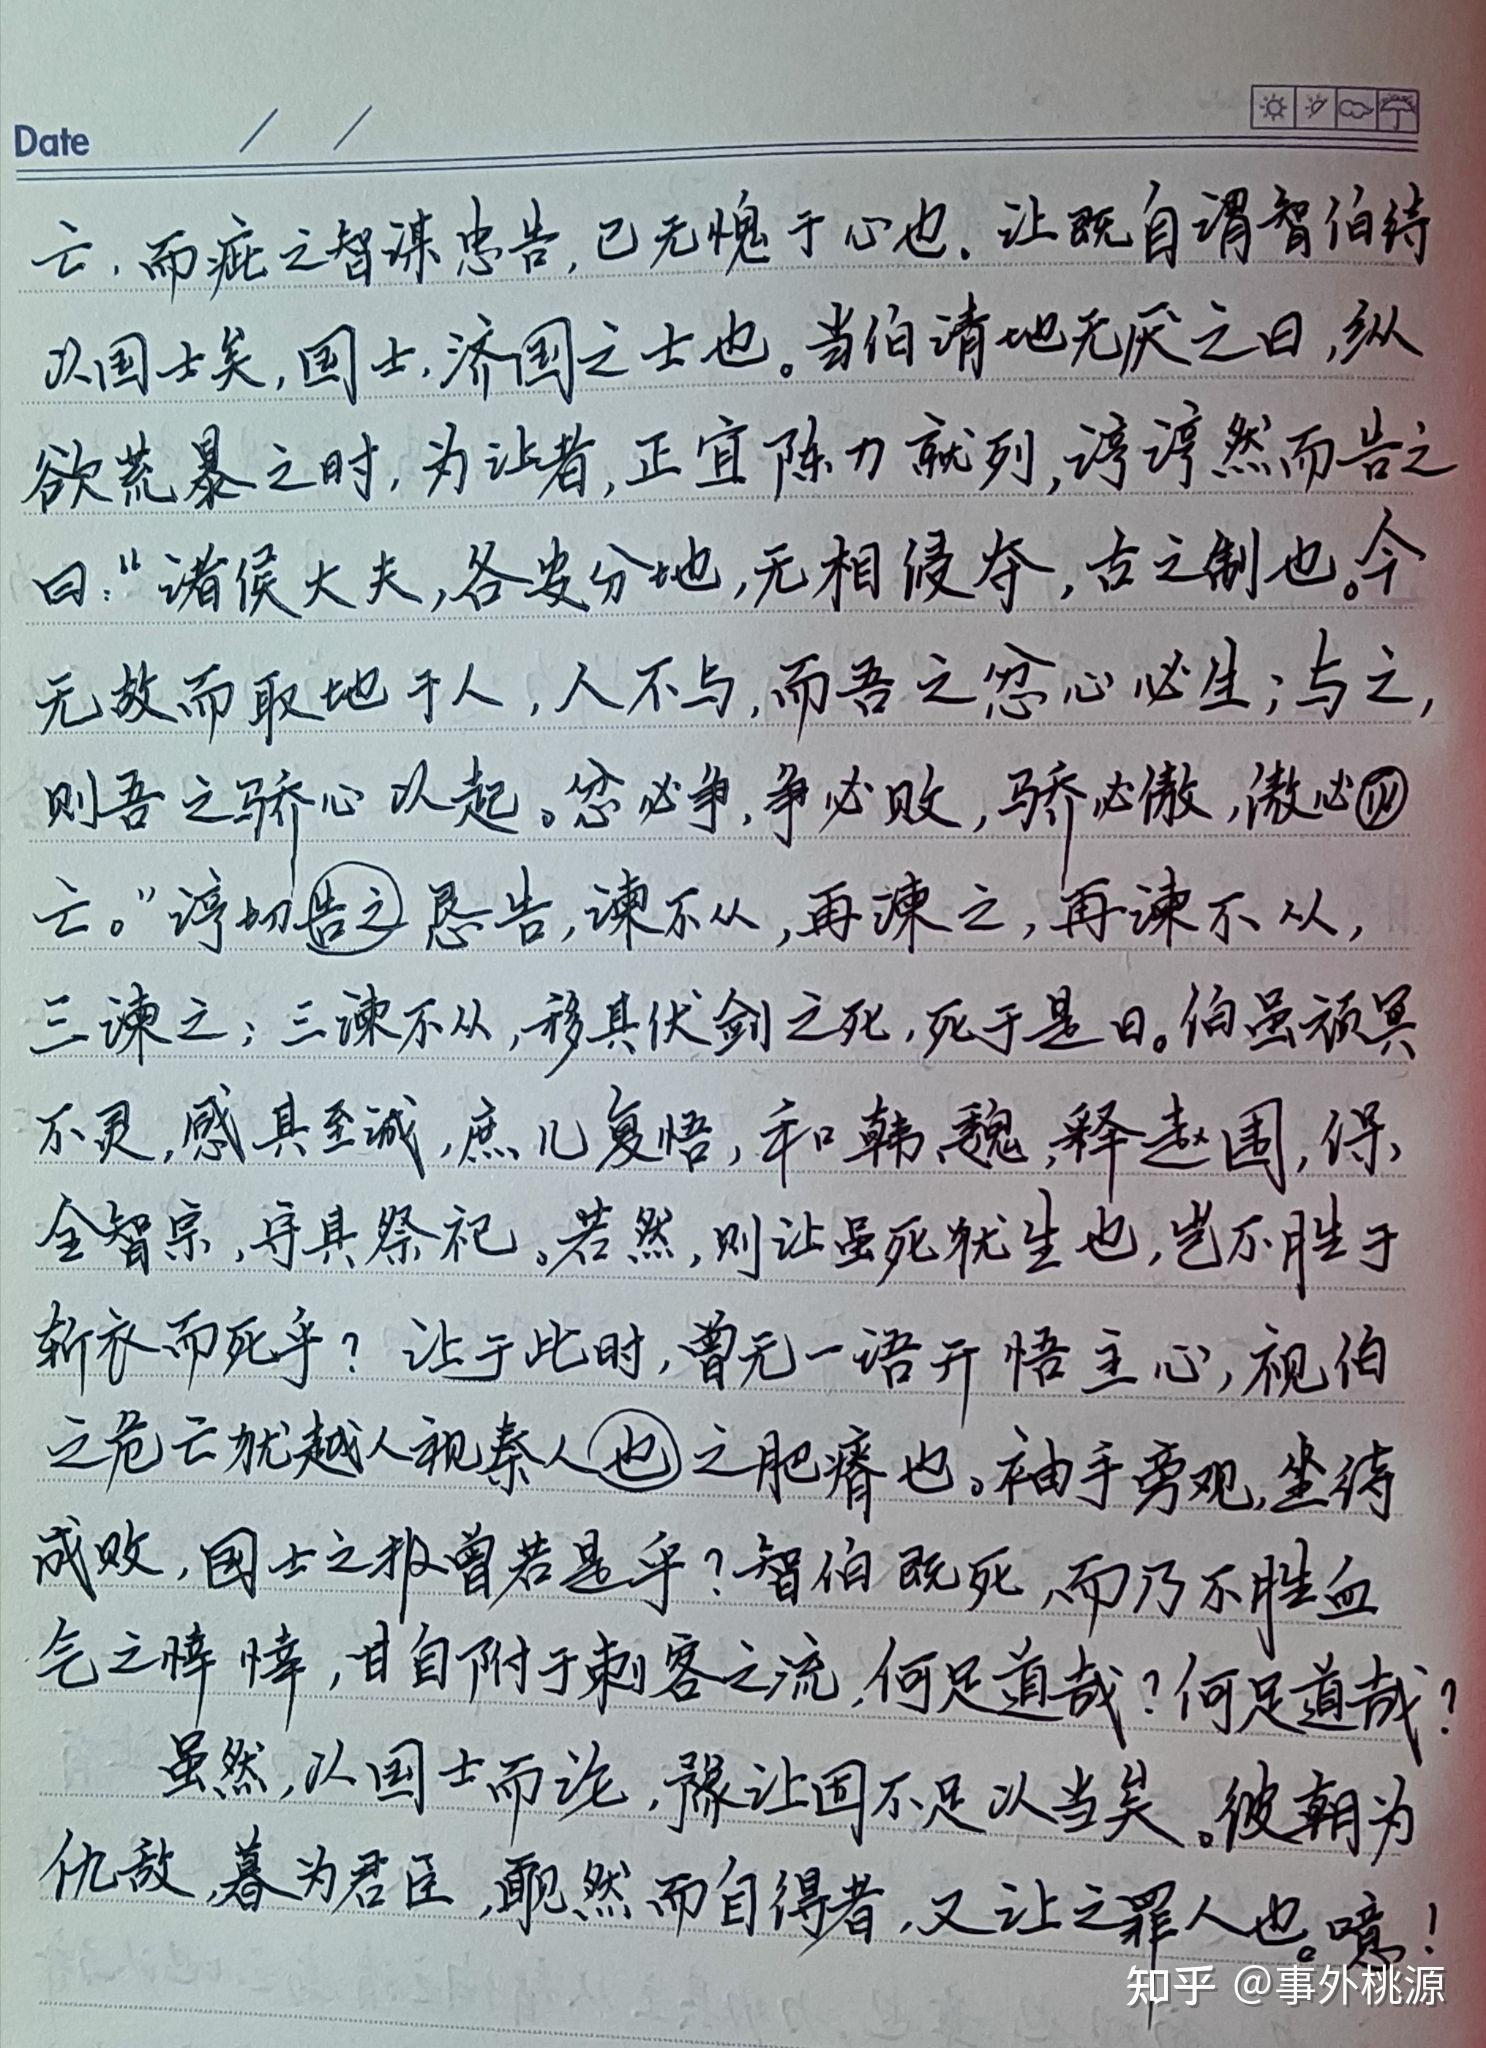 Date / /
亡，而疵之智谋忠告，已无愧于心也。让既自谓智伯待
以国士矣，国士，济国之士也。当伯请地无厌之日，纵
欲荒暴之时，为让者，正宜陈力就列，谆谆然而告之
曰：“诸侯大夫，各安分地，无相侵夺，古之制也。今
无故而取地于人，人不与，而吾之忿心必生；与之，
则吾之骄心以起。忿必争，争必败，骄必傲，傲必
亡。”谆切告之恳告，谏不从，再谏之，再谏不从，
三谏之；三谏不从，移其伏剑之死，死于是日。伯虽顽冥
不灵，感其至诚，庶几复悟，和韩魏，释赵围，保
全智宗，守其祭祀。若然，则让虽死犹生也，岂不胜于
斩衣而死乎？让于此时，曾无一语开悟主心，视伯
之危亡犹越人视秦人也之肥瘠也。袖手旁观，坐待
成败，国士之报曾若是乎？智伯既死，而乃不胜血
气之悻悻，甘自附于刺客之流，何足道哉？何足道哉？
虽然，以国士而论，豫让固不足以当矣。彼朝为
仇敌，暮为君臣，靦然而自得者，又让之罪人也。噫！
知乎 @事外桃源